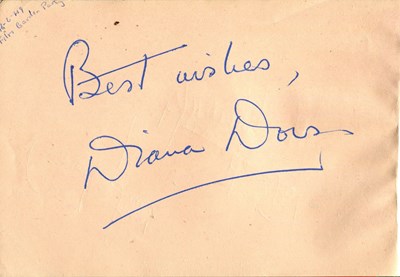 Garden Party
Best wishes,
Diana Dors